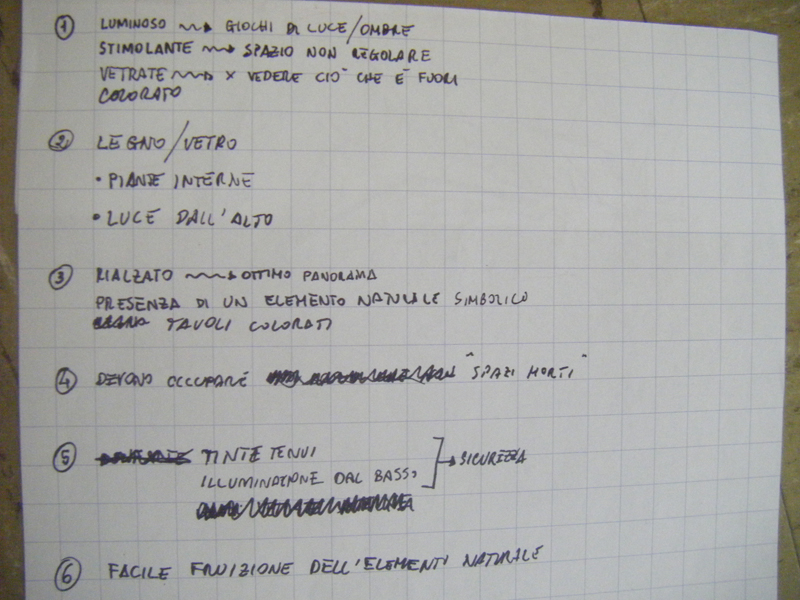 ① LUMINOSO ~~→ GIOCHI DI LUCE/OMBRE
STIMOLANTE ~~→ SPAZIO NON REGOLARE
VETRATE ~~→ x VEDERE CIÒ CHE È FUORI
COLORATO
② LEGNO/VETRO
• PIANTE INTERNE
• LUCE DALL'ALTO
③ RIALZATO ~~→ OTTIMO PANORAMA
PRESENZA DI UN ELEMENTO NATURALE SIMBOLICO
TAVOLI COLORATI
④ DEVONO OCCUPARE "SPAZI MORTI"
⑤ TINTE TENUI
ILLUMINAZIONE DAL BASSO → SICUREZZA
⑥ FACILE FRUIZIONE DELL'ELEMENTI NATURALE